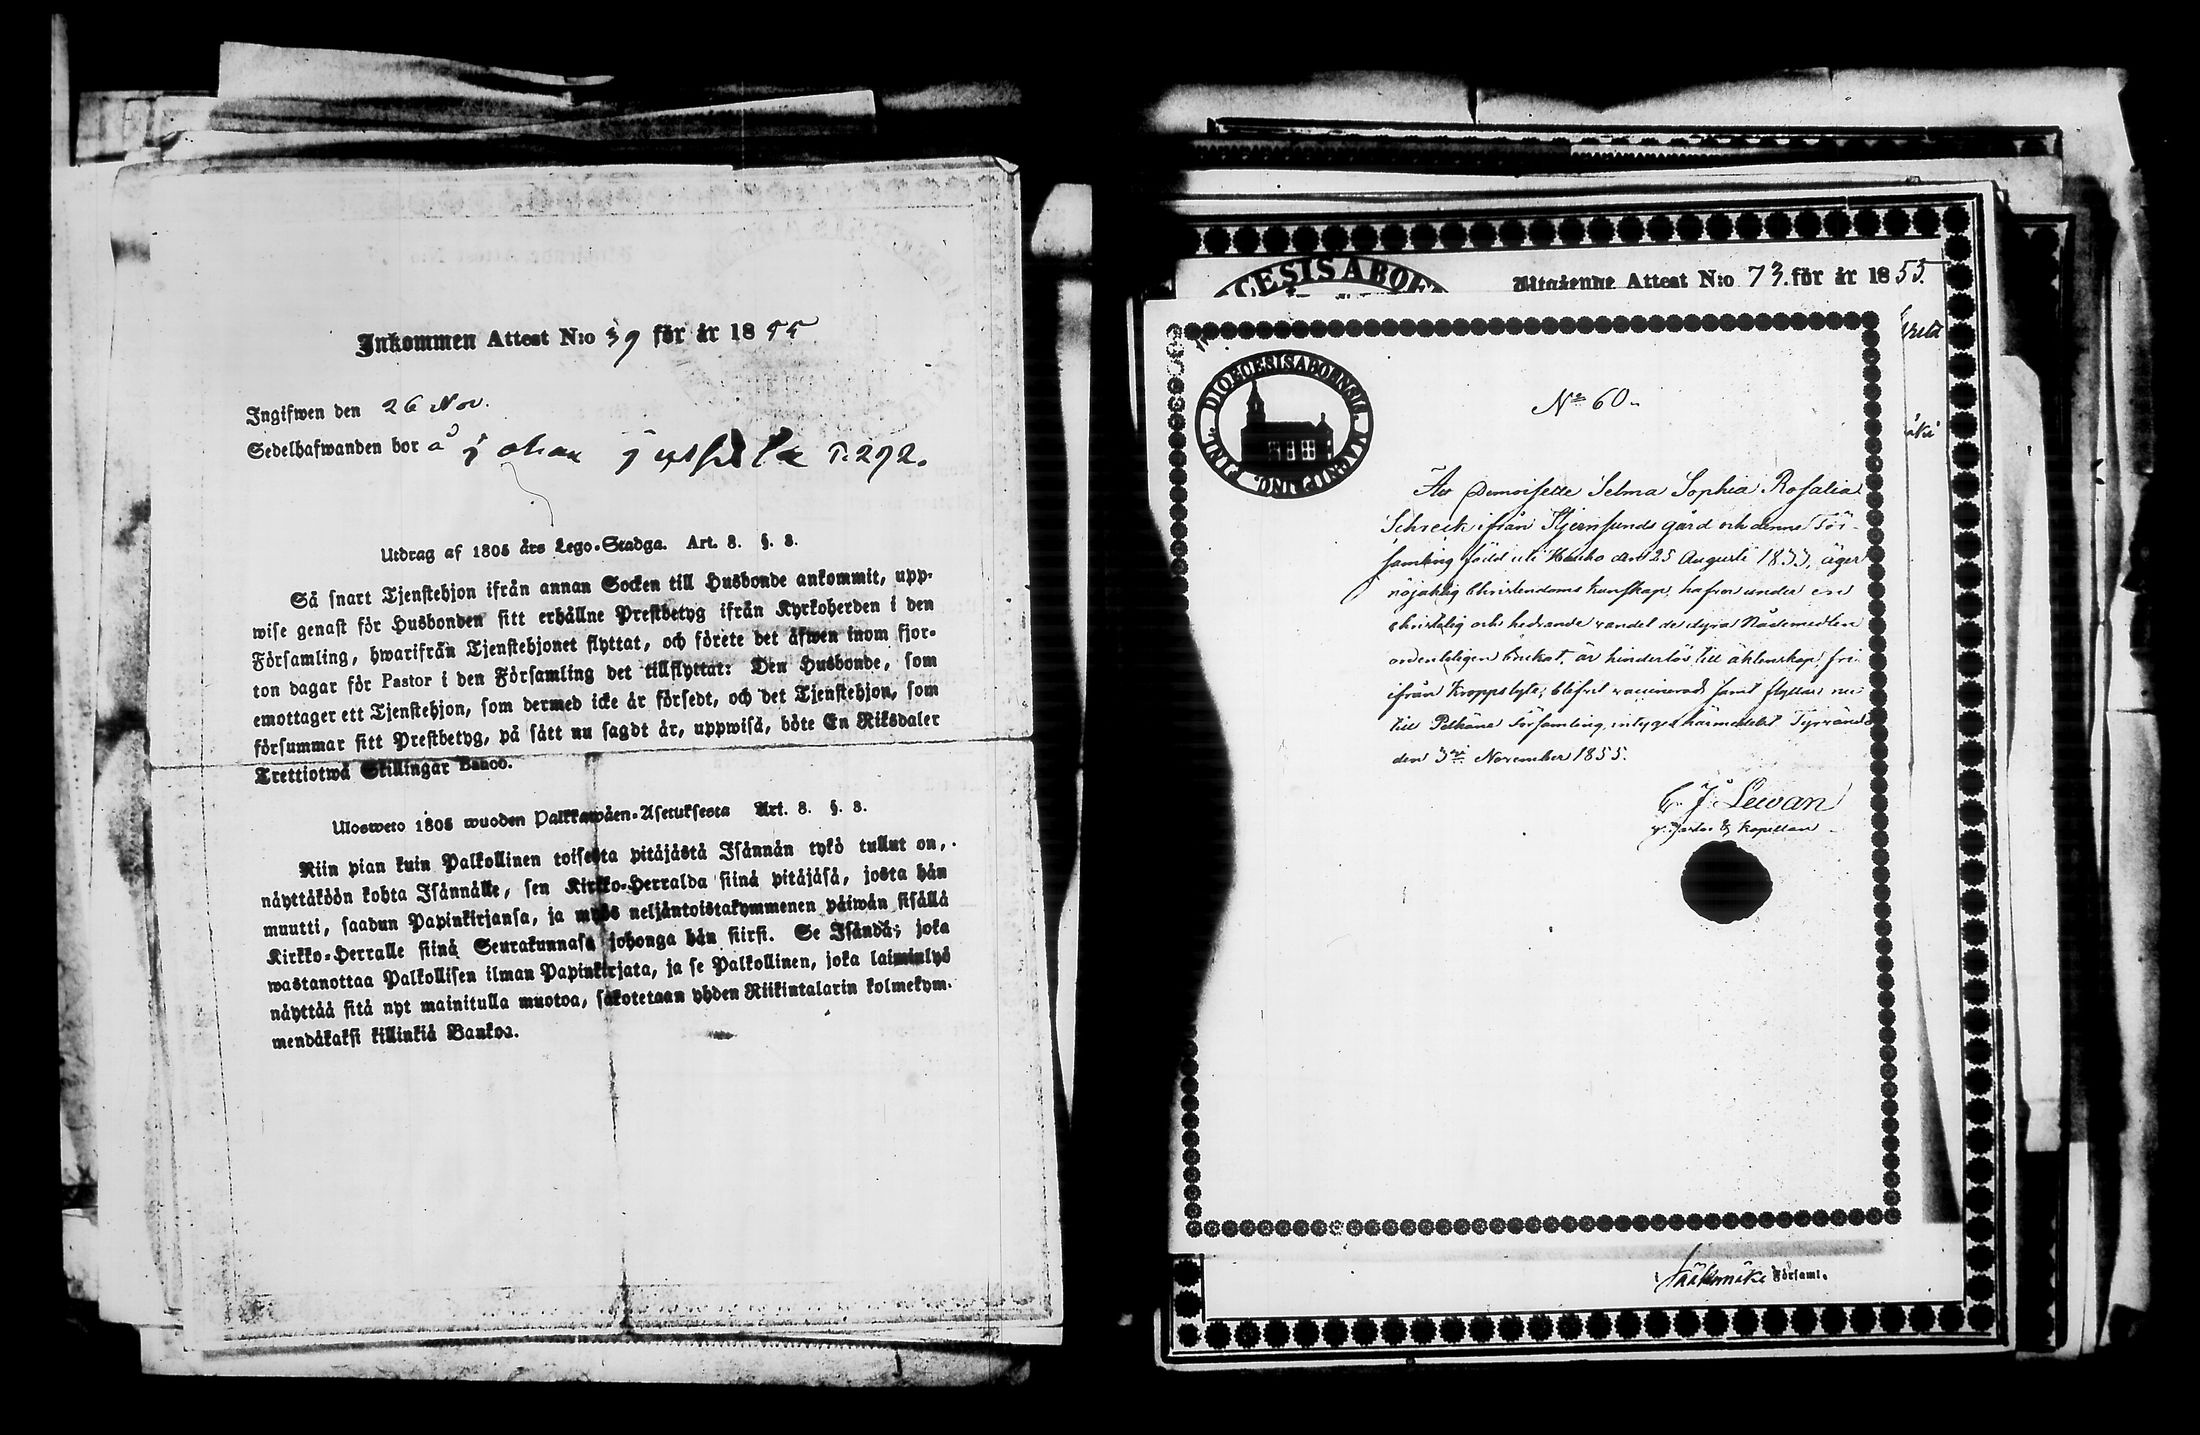 Inkommen Attest N:o 39 för år 1855
Ingifwen den 26 Nov.
Sedelhafwanden bor å Johan T. 292.
Utdrag af 1805 års Lego-Stadga. Art. 8. §. 8.
Så snart Tjenstehjon ifrån annan Socken till Husbonde ankommit, upp-
wise genast för Husbonden sitt erhållne Prestbetyg ifrån Kyrkoherden i den
Församling, hwarifrån Tjenstehjonet flyttat, och förete det äfwen inom fjor-
ton dagar för Pastor i den Församling det tillflyttat: Den Husbonde, som
emottager ett Tjenstehjon, som dermed icke är försedt, och det Tjenstehjon, som
försummar sitt Prestbetyg, på sätt nu sagdt är, uppwisa, böte En Riksdaler
Trettiotwå Skillingar Banco.
Ulosweto 1805 wuoden Palkkawäen-Asetuksesta Art. 8. §. 8.
Niin pian kuin Palkollinen toisesta pitäjästä Isännän tykö tullut on,
näyttäköön kohta Isännälle, sen Kirkko-Herralda siinä pitäjäsä, josta hän
muutti, saadun Papinkirjansa, ja myös neljäntoistakymmenen päiwän sisällä
Kirkko-Herralle siinä Seurakunnasa johonga hän siirsi. Se Isändä; joka
wastanottaa Palkollisen ilman Papinkirjata, ja se Palkollinen, joka laiminlyö
näyttää sitä nyt mainitulla muotoa, sakotetaan yhden Riikintalarin kolmekym-
mendäkaksi killinkiä Bankoa.
CESIS ABOE
Utgående Attest N:o 73. för år 1855.
DIOECESIS ABOENSIS. MAGNI PRINC. FINL.
No 60.
Att Demoiselle Selma Sophia Rosalia
Schreck ifrån Hjernsunds gård och denne För-
samling född uti den 25 Augusti 1833, äger
nöjaktig Christendoms kunskap, hafver under en
christelig och hedrande vandel de dyra Nådemedlen
ordenteligen brukat, är hinderlös till äktenskap, fri
ifrån kroppslyte, blifvit vaccinerad samt flyttar nu
till Pelkäne Församling, intygar härmedelst Tyrvändö
den 3 November 1855.
C. J. Lewan
v. Pastor & Kapellan
i Sääksmäki Församl.